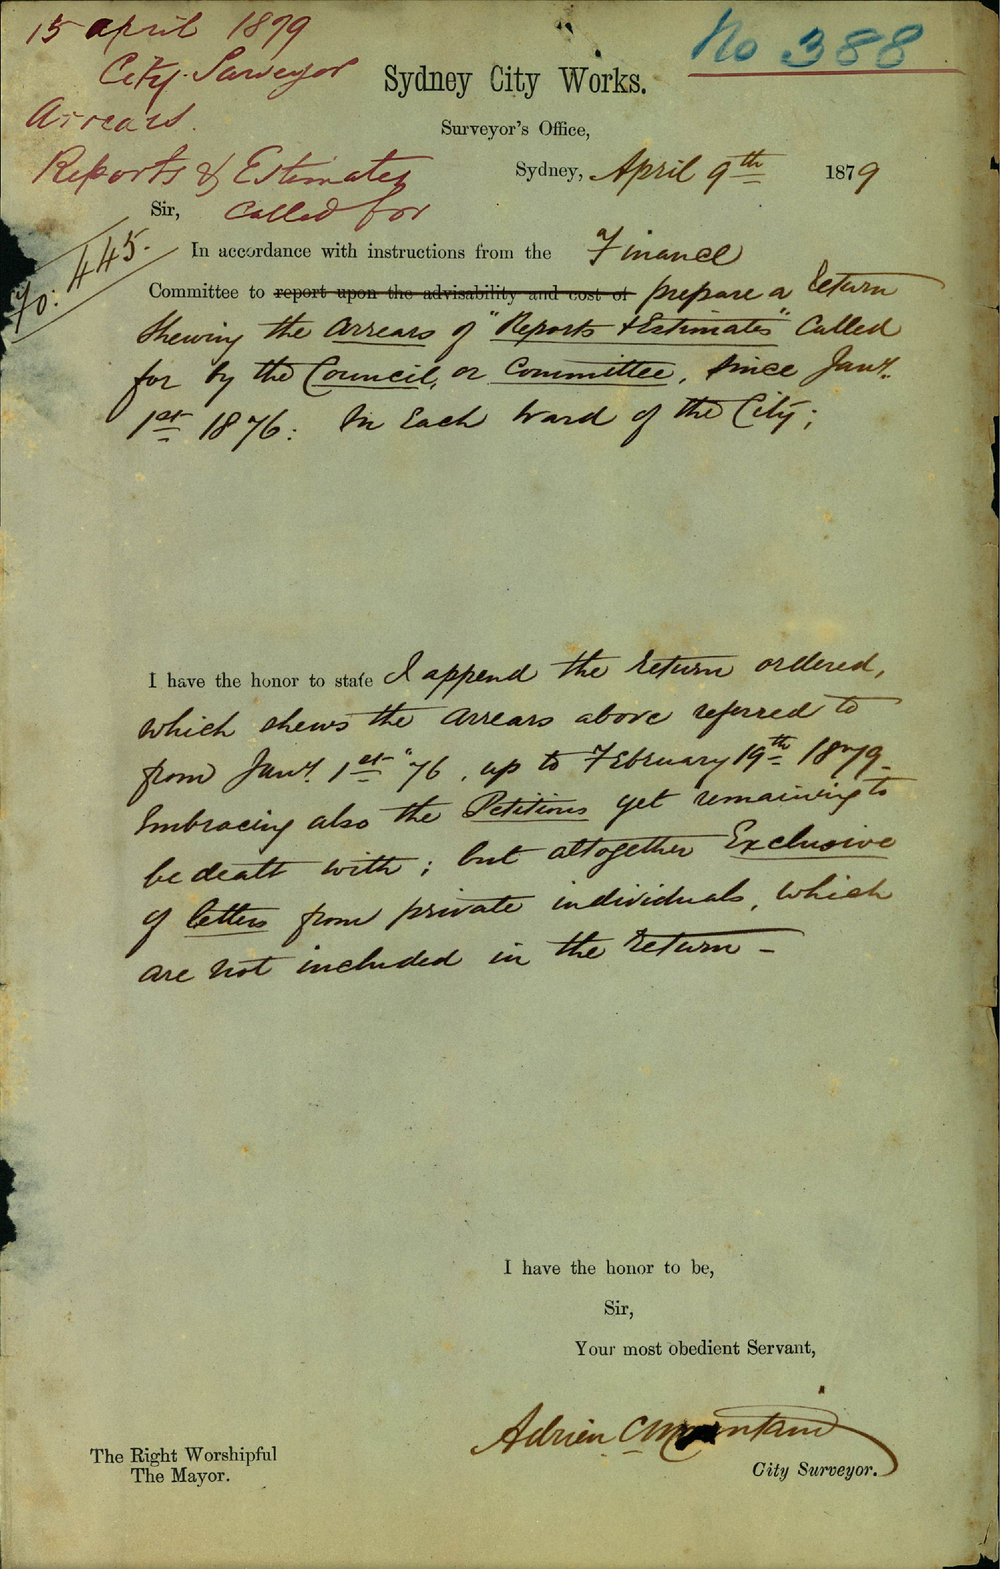 15 april 1879
City Surveyor
Arrears.
Reports & Estimates
called for
No 388
Sydney City Works.
Surveyor's Office,
Sydney, April 9th 1879
Sir,
445.
In accordance with instructions from the Finance
Committee to report upon the advisability and cost of prepare a return
shewing the Arrears of "Reports & Estimates" Called
for by the Council, or Committee, since Jany.
1st 1876: In Each Ward of the City;
I have the honor to state I append the return ordered,
which shews the Arrears above referred to
from Jany. 1st "76, up to February 19th 1879_
Embracing also the Petitions yet remaining to
be dealt with; but altogether Exclusive
of letters from private individuals, which
are not included in the return —
I have the honor to be,
Sir,
Your most obedient Servant,
Adrien C Mountain
City Surveyor.
The Right Worshipful
The Mayor.